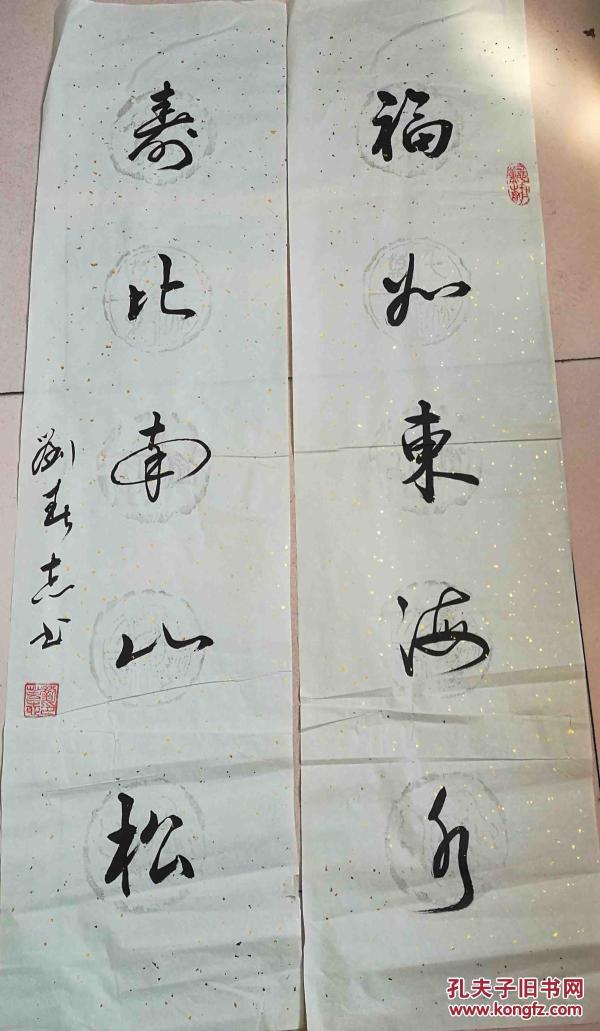 福如東海水
寿比南山松
劉春志书
孔夫子旧书网
www.kongfz.com